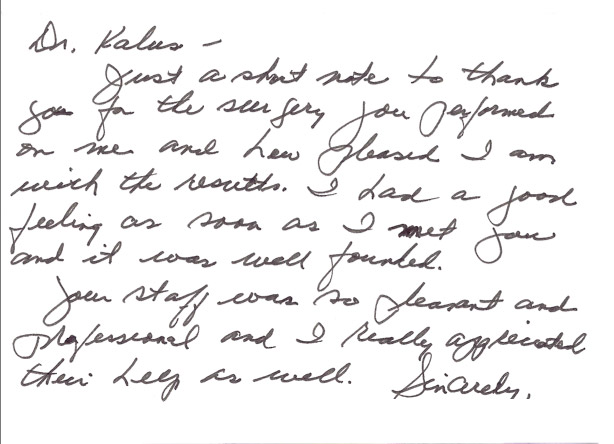 Dr. Kalus –
Just a short note to thank
you for the surgery you performed
on me and how pleased I am
with the results. I had a good
feeling as soon as I met you
and it was well founded.
Your staff was so pleasant and
professional and I really appreciated
their help as well. Sincerely,